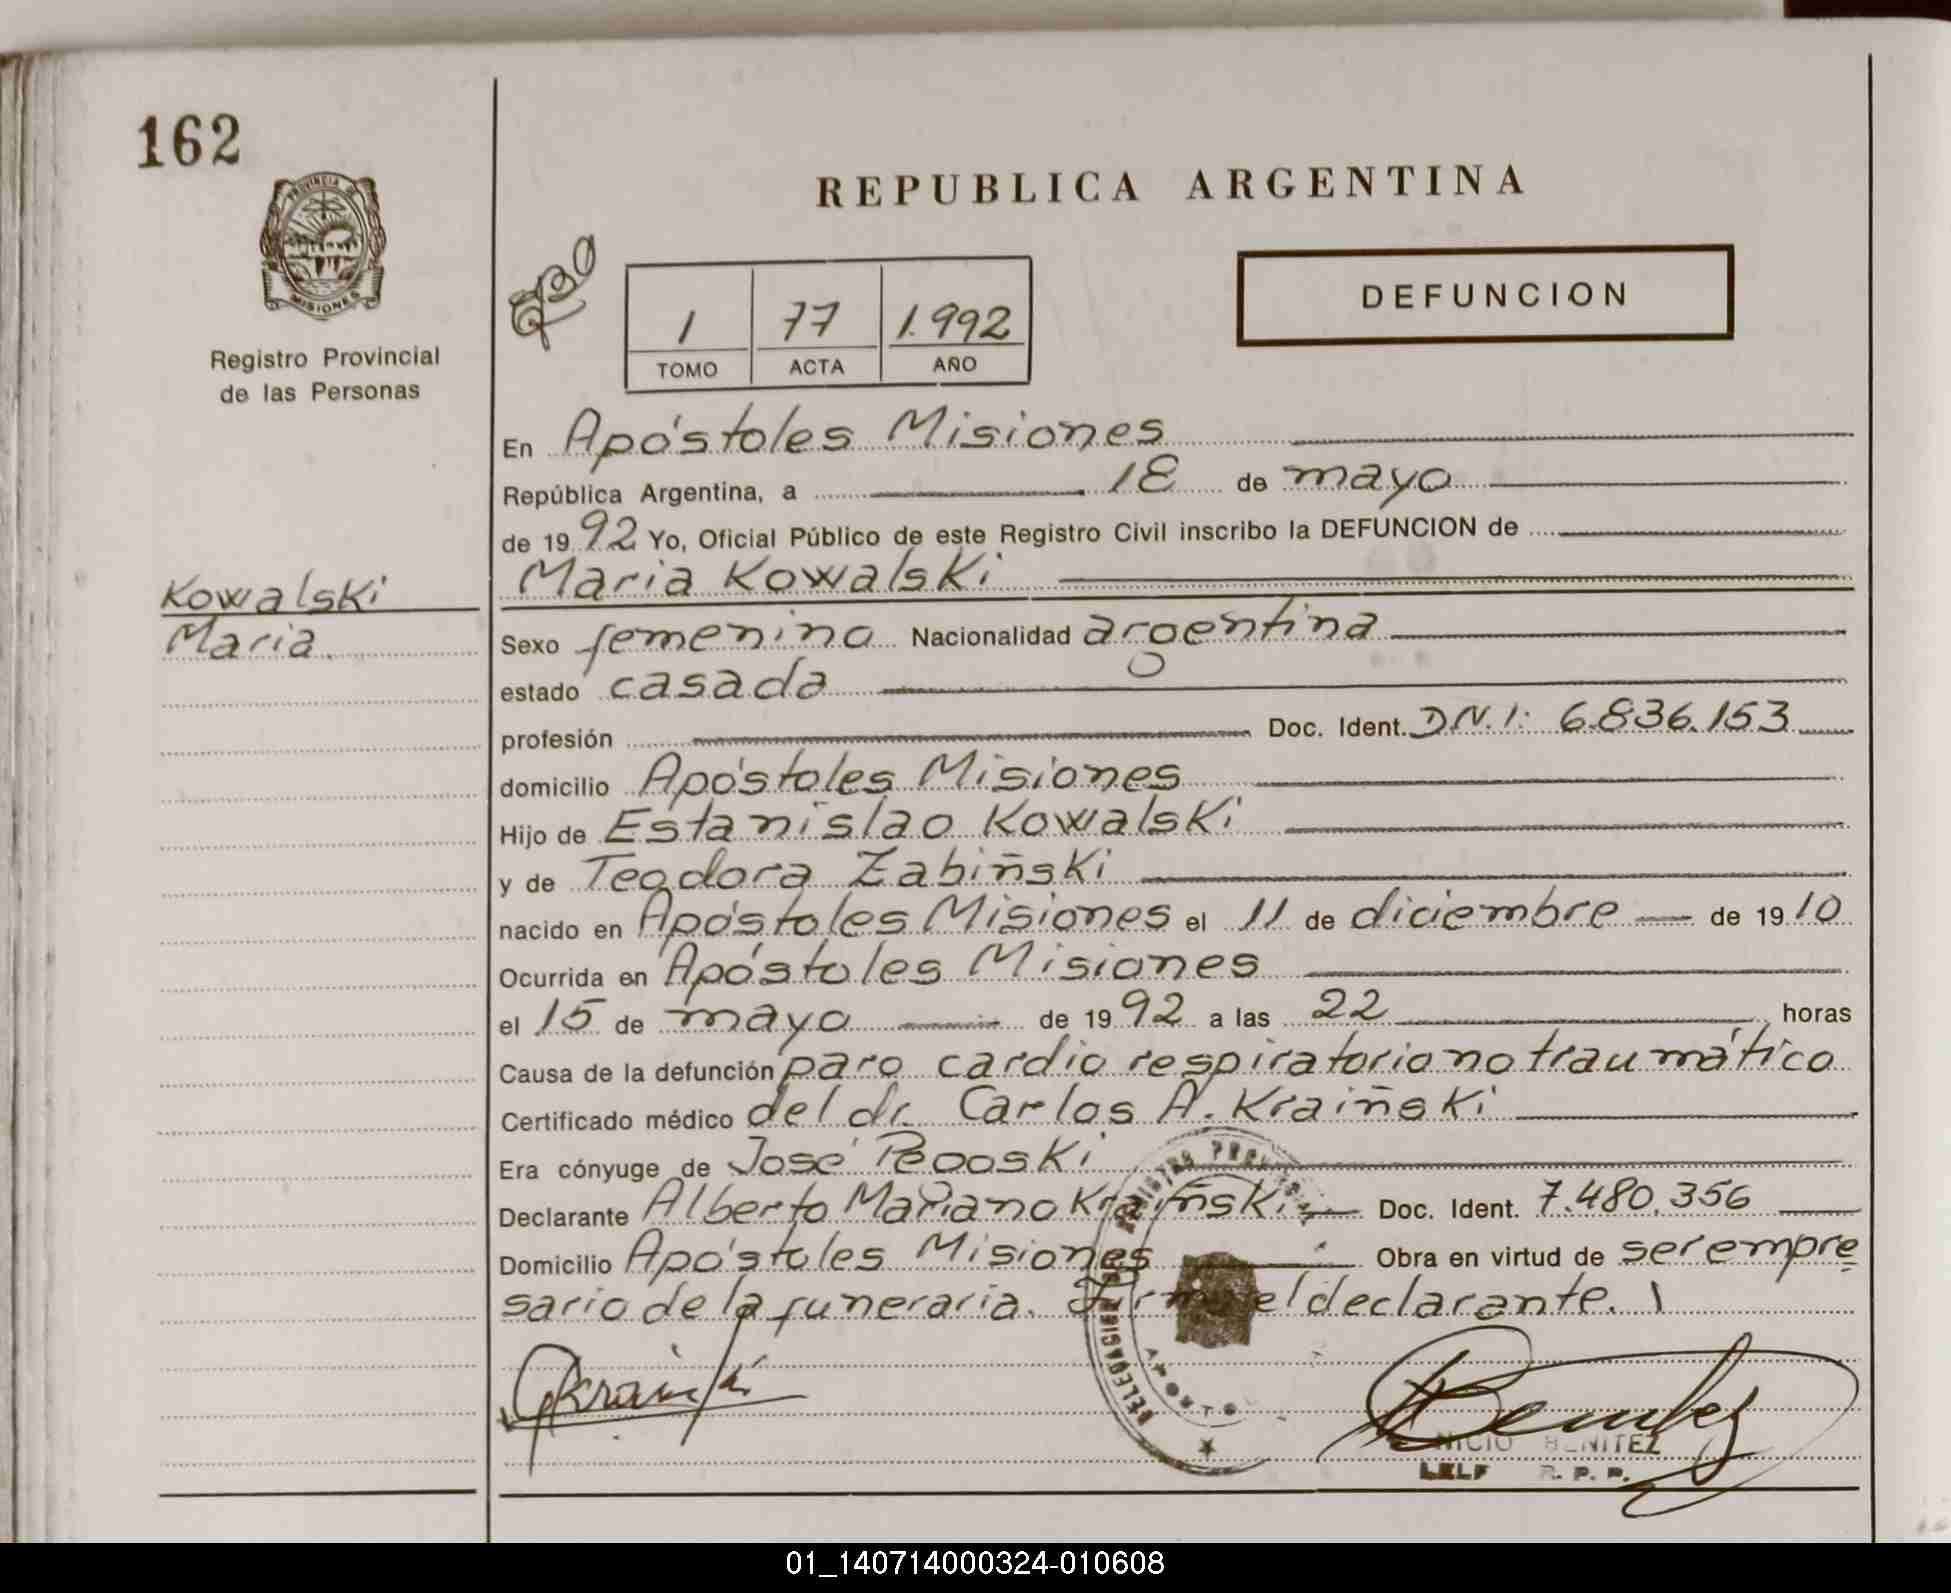 162
PROVINCIA DE
MISIONES
Registro Provincial
de las Personas
Kowalski
Maria.
REPUBLICA ARGENTINA
1 77 1.992
TOMO ACTA AÑO
DEFUNCION
En Apóstoles Misiones
República Argentina, a 18 de mayo
de 1992 Yo, Oficial Público de este Registro Civil inscribo la DEFUNCION de
Maria Kowalski
Sexo femenino Nacionalidad argentina
estado casada
profesión Doc. Ident. D.N.I: 6.836.153
domicilio Apóstoles Misiones
Hijo de Estanislao Kowalski
y de Teodora Zabiñski
nacido en Apóstoles Misiones el 11 de diciembre de 1910
Ocurrida en Apóstoles Misiones
el 15 de mayo de 1992 a las 22 horas
Causa de la defunción paro cardio respiratorio no traumático
Certificado médico del dr. Carlos A. Kraiñski
Era cónyuge de José
Declarante Alberto Mariano Kraiñski Doc. Ident. 7.480.356
Domicilio Apóstoles Misiones Obra en virtud de ser empre
sario de la funeraria. Firma el declarante.
BENITEZ
R. P. P.
01_140714000324-010608